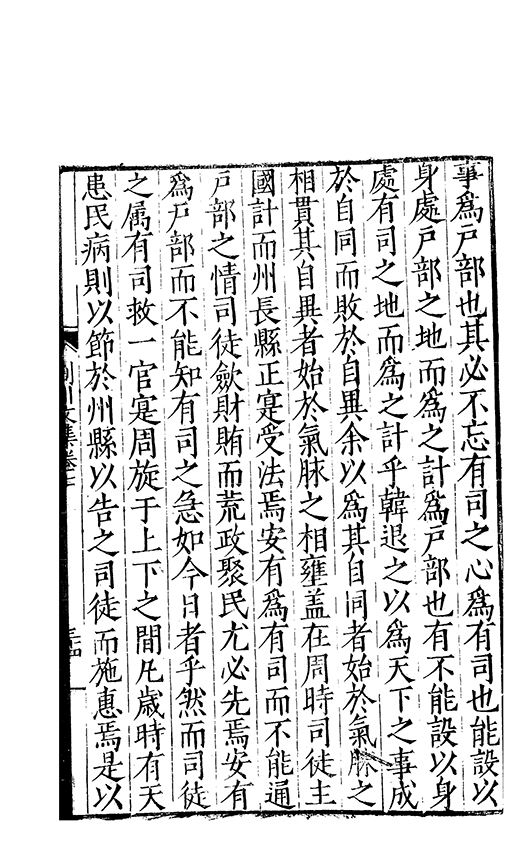 事爲戸部也其必不忘有司之心爲有司也能設以
身處戸部之地而爲之計爲戸部也有不能設以身
處有司之地而爲之計乎韓退之以爲天下之事成
於自同而敗於自異余以爲其自同者始於氣脉之
相貫其自異者始於氣脉之相壅盖在周時司徒主
國計而州長縣正寔受法焉安有爲有司而不能通
戸部之情司徒歛財賄而荒政聚民尤必先焉安有
爲戸部而不能知有司之急如今日者乎然而司徒
之属有司救一官寔周旋于上下之間凡歲時有天
患民病則以節於州縣以告之司徒而施惠焉是以
荆川文集卷七